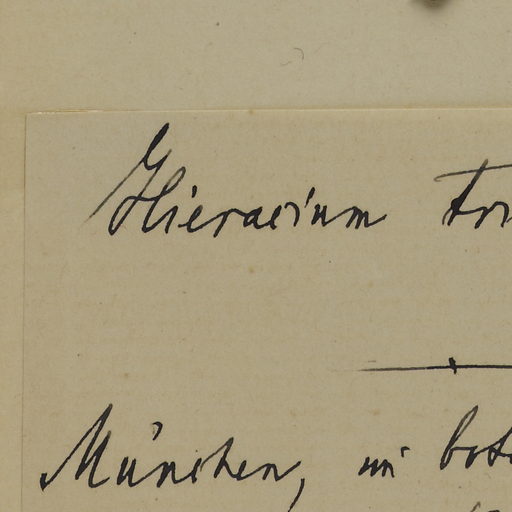 Hieracium tri
München, im bot